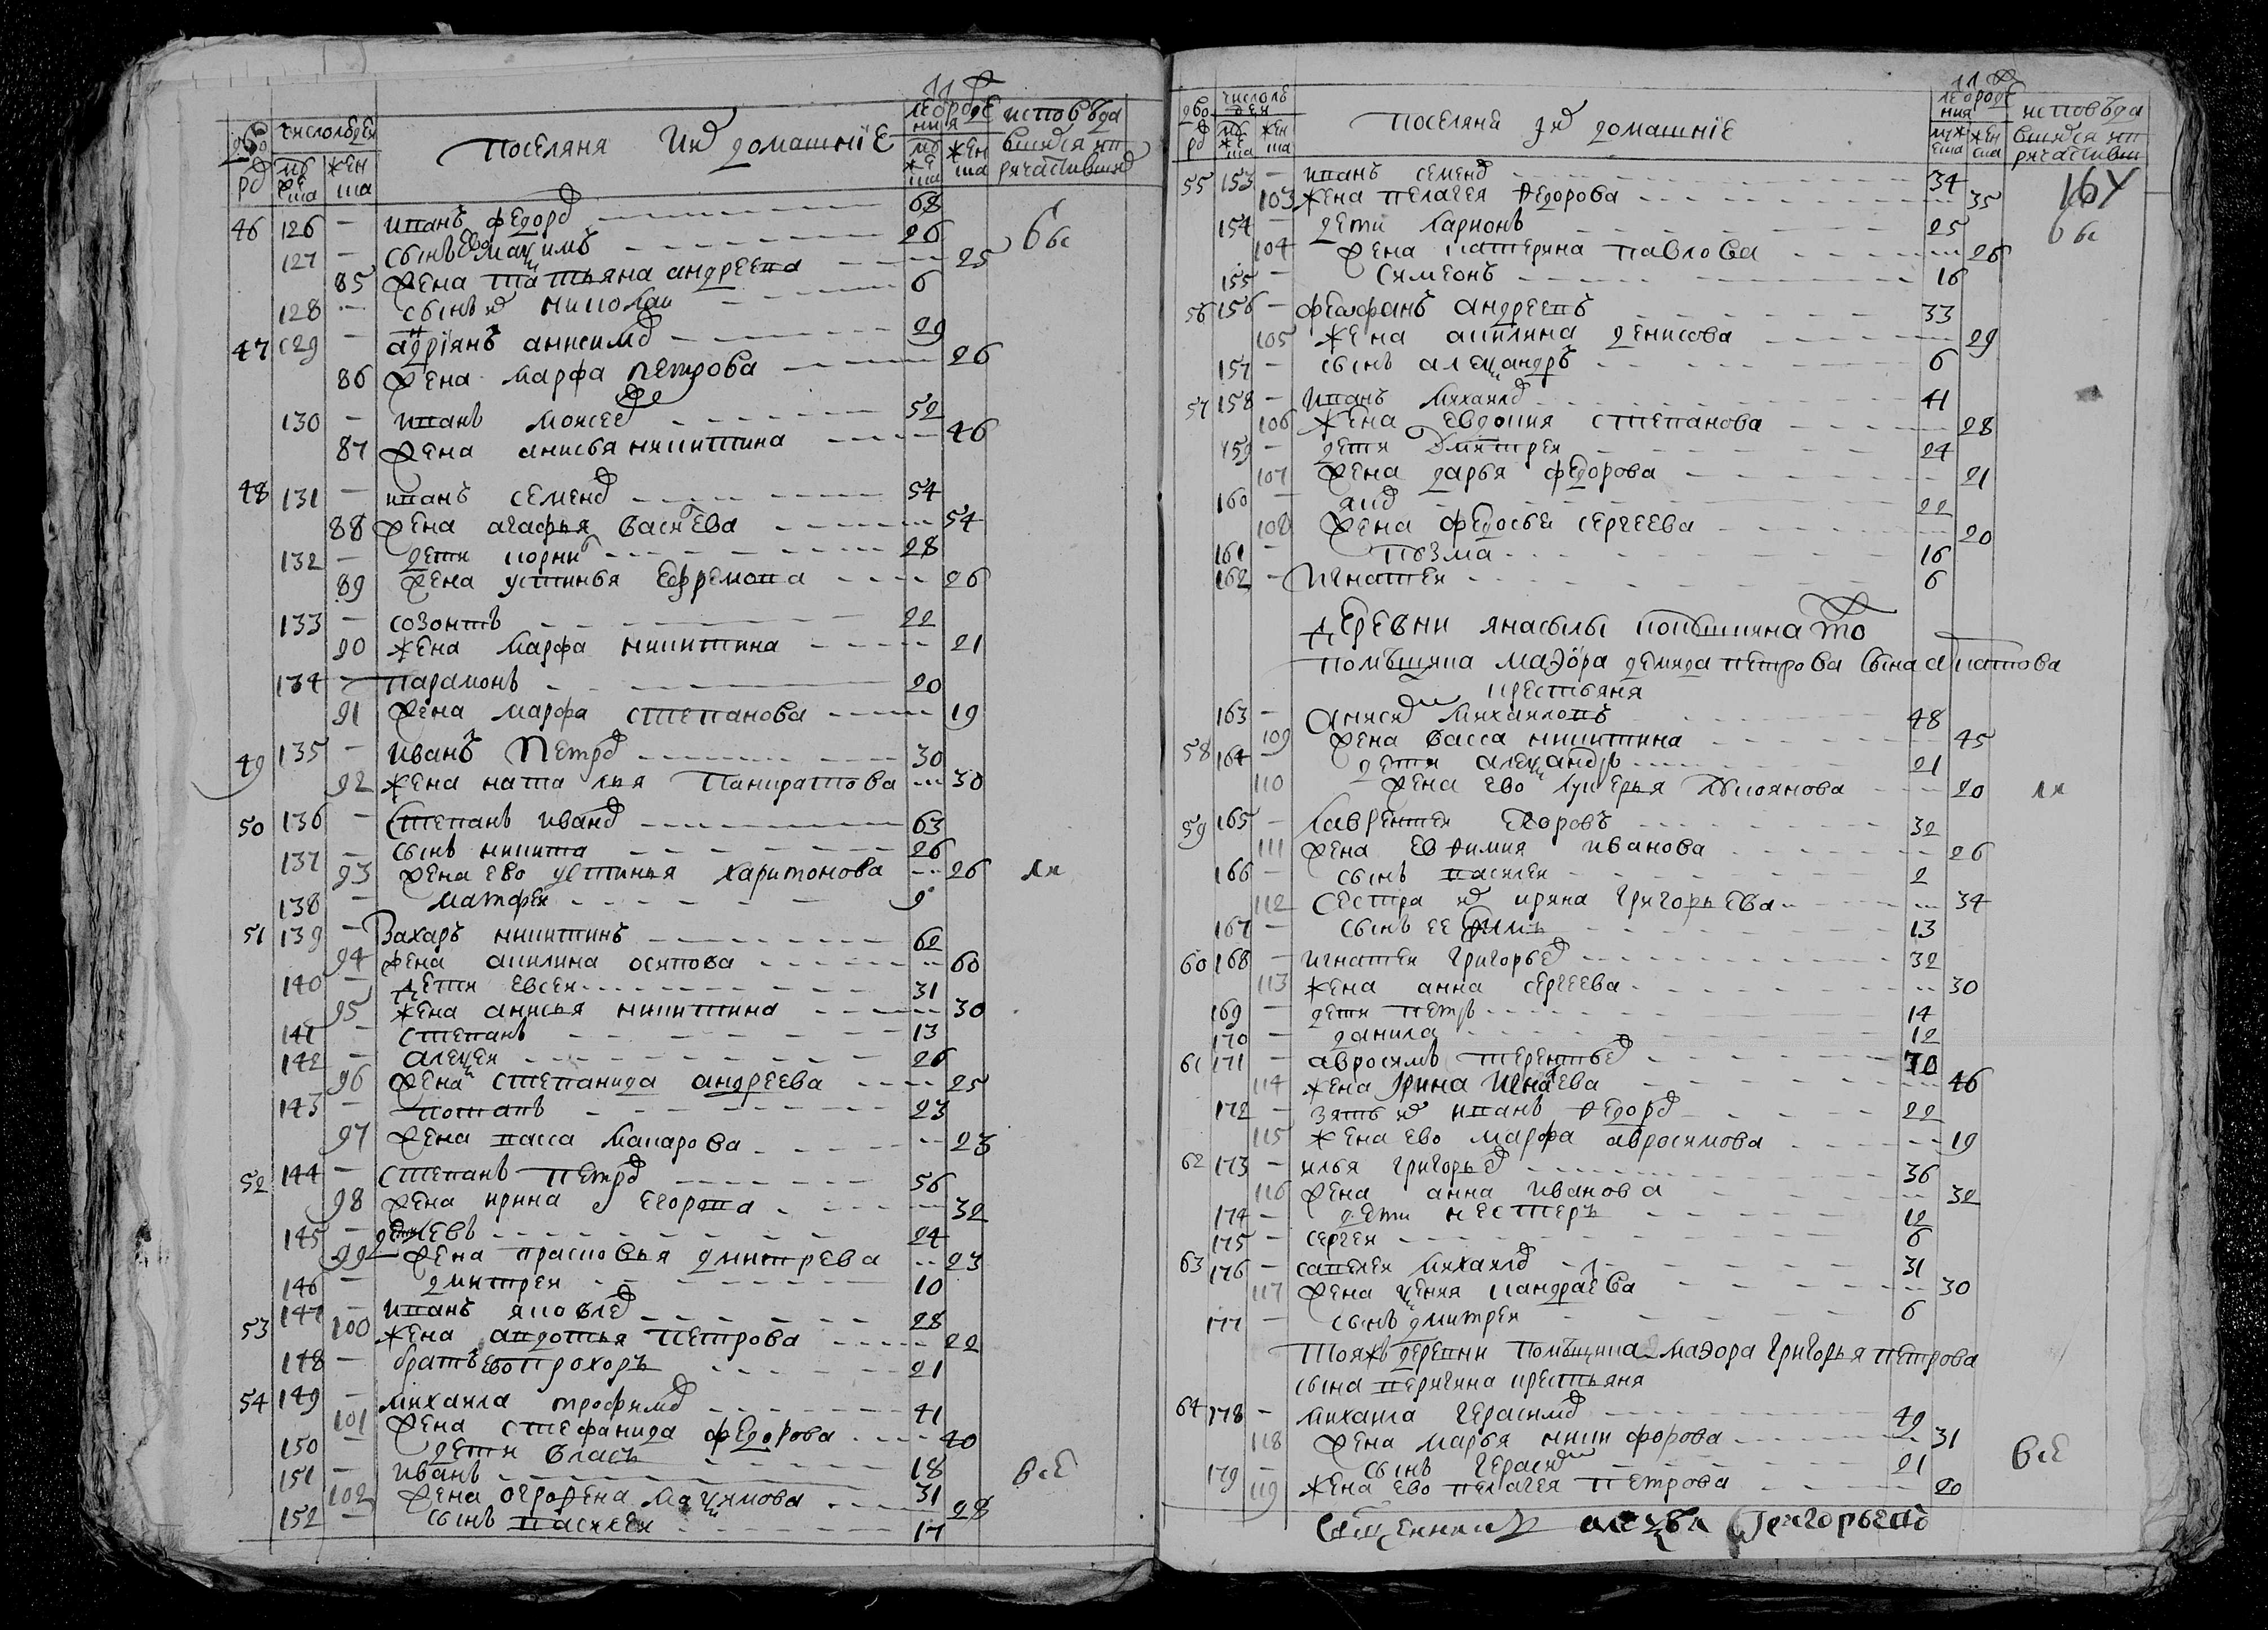 дворы число людей поселяне их домашнїе лет от рождения исповеда
муже ска жен ска муже ска жен ска вшихся и причастившихся
46 126 – иванъ федоро 68 все
127 – сынъ ево маѯимъ 26
85 жена татьяна андреева 25
128 – сынъ их николаи 6
47 129 – адрїянъ анисимо 29
86 жена марфа петрова 26
130 – иванъ моисее 52
87 жена анисья никитина 46
48 131 – иванъ семено 54
88 жена агафья василева 54
132 – дети корни 28
89 жена устинья ефремова 26
133 – созонтъ 22
90 жена марфа никитина 21
134 – парамонъ 20
91 жена марфа степанова 19
49 135 – иванъ петро 30
92 жена наталья панкратова 30
50 136 – степанъ ивано 63
137 – сынъ никита 26
93 жена ево устинья харитонова 26
138 – матфеи 9
51 139 – захаръ никитинъ 62
94 жена акилина осипова 60
140 – дети евсеи 31
95 жена анисья никитина 30
141 – степанъ 13
142 – алеѯеи 26
96 жена степанида андреева 25
143 – потапъ 23
97 жена васса макарова 23
52 144 – степанъ петро 56
98 жена ирина егорова 32
145 – 24
99 жена прасковья дмитрева 23
146 – дмитреи 10
53 147 – иванъ яковле 28
100 жена авдотья петрова 22
148 – братъ ево прохоръ 21
54 149 – михаила трофимо 41
101 жена стефанида федорова 40
150 – дети власъ 18
151 – иванъ 31 все
102 жена огрофена маѯимова 28
152 – сынъ василеи 17
дворы число людей поселяне их домашнїе лет от рождения исповеда
муже ска жен ска муже ска жен ска вшихся и причастивши
164
55 153 – иванъ семено 34
103 жена пелагея ѳедорова 35
154 – дети ларионъ 25 все
104 жена катерина павлова 26
155 – симеонъ 16
56 156 – феофанъ андреевъ 33
105 жена акилина денисова 29
157 – сынъ алеѯандръ 6
57 158 – иванъ михаило 41
106 жена евдокия степанова 28
159 – дети дмитреи 24
107 жена дарья федорова 21
160 – яко 22
108 жена федосья сергеева 20
161 – козма 16
162 – игнатеи 6
деревни янасылы
помѣщика маэора демида петрова сына
крестьяня
163 – михаиловъ 48
109 жена васса никитина 45
58 164 – дети алеѯандръ 21
110 жена ево лукерья лукоянова 20
59 165 – лаврентеи егоровъ 32
111 жена евѳимия иванова 26
166 – сынъ василеи 2
112 сестра их ирина григорьева 34
167 – сынъ ее 13
60 168 – игнатеи григорье 32
113 жена анна сергеева 30
169 – дети петръ 14
170 – данила 12
61 171 – авросимъ теренте 70
114 жена ирина игнатева 46
172 – зять их иванъ ѳедоро 22
115 жена ево марфа авросимова 19
62 173 – илья григорье 36
116 жена анна иванова 32
174 – дети нестеръ 12
175 – сергеи 6
63 176 – савелеи михаило 31
117 жена ѯения кандраева 30
177 – сынъ дмитреи 6
тояжъ деревни помѣщика маэора григорья петрова
сына крестьяня
64 178 – михаила герасимо 49
118 жена марья никифорова 31
179 – сынъ гераси 21 все
119 жена ево пелагея петрова 20
священникъ алеѯѣи григорьевъ